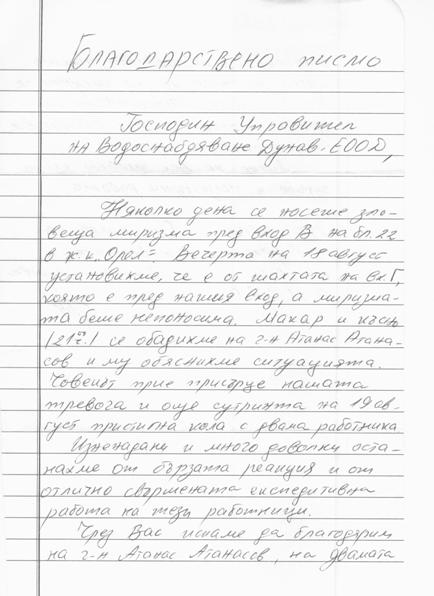 Благодарствено писмо
Господин Управител
на Водоснабдяване Дунав. ЕООД,
Няколко дена се носеше зло-
веща миризма пред вход В на бл. 22
в ж.к. Орел= Вечерта на 18 август
установихме, че е от шахтата на вх. Г,
която е пред нашия вход, а миризма-
та беше непоносима. Макар и късно
/21ч./ се обадихме на г-н Атанас Атана-
сов и му обяснихме ситуацията.
Човекът прие присърце нашата
тревога и още сутринта на 19 ав-
густ пристигна кола с двама работника
Изненадани и много доволни оста-
нахме от бързата реакция и от
отлично свършената експедитивна
работа на тези работници.
Чрез Вас искаме да благодарим
на г-н Атанас Атанасов, на двамата